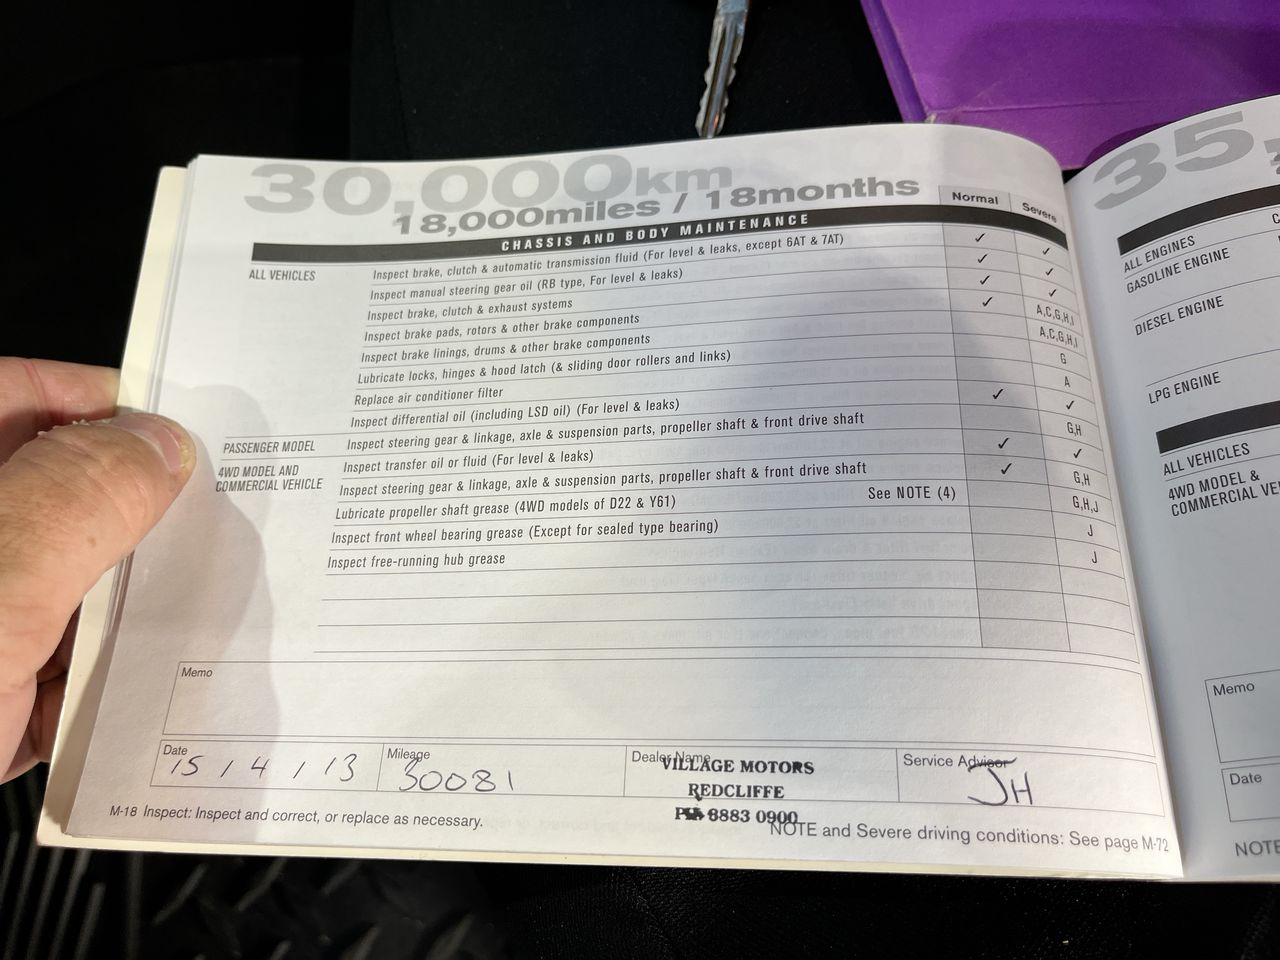 30,000km
18,000miles / 18months
Normal
Severe
CHASSIS AND BODY MAINTENANCE
ALL VEHICLES
Inspect brake, clutch & automatic transmission fluid (For level & leaks, except 6AT & 7AT) ✓ ✓
Inspect manual steering gear oil (RB type, For level & leaks) ✓ ✓
Inspect brake, clutch & exhaust systems ✓ ✓
Inspect brake pads, rotors & other brake components ✓ A,C,G,H,I
Inspect brake linings, drums & other brake components A,C,G,H,I
Lubricate locks, hinges & hood latch (& sliding door rollers and links) G
Replace air conditioner filter A
Inspect differential oil (including LSD oil) (For level & leaks) ✓ ✓
PASSENGER MODEL
Inspect steering gear & linkage, axle & suspension parts, propeller shaft & front drive shaft G,H
4WD MODEL AND
COMMERCIAL VEHICLE
Inspect transfer oil or fluid (For level & leaks) ✓ ✓
Inspect steering gear & linkage, axle & suspension parts, propeller shaft & front drive shaft ✓ G,H
Lubricate propeller shaft grease (4WD models of D22 & Y61) See NOTE (4) G,H,J
Inspect front wheel bearing grease (Except for sealed type bearing) J
Inspect free-running hub grease J
Memo
Date
15 / 4 / 13
Mileage
30081
Dealer Name
VILLAGE MOTORS
REDCLIFFE
8883 0900
Service Advisor
JH
M-18 Inspect: Inspect and correct, or replace as necessary.
NOTE and Severe driving conditions: See page M-72
35,
ALL ENGINES
GASOLINE ENGINE
DIESEL ENGINE
LPG ENGINE
ALL VEHICLES
4WD MODEL &
COMMERCIAL VE
Memo
Date
NOTE